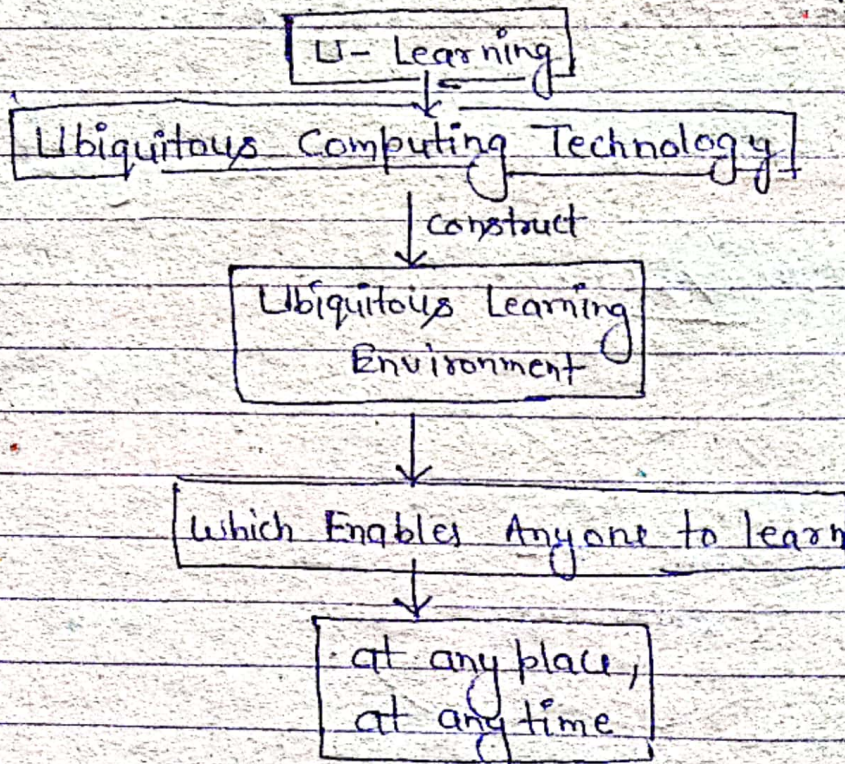 U- Learning
Ubiquitous Computing Technology
construct
Ubiquitous Learning
Environment
Which Enables Anyone to learn
at any place,
at any time